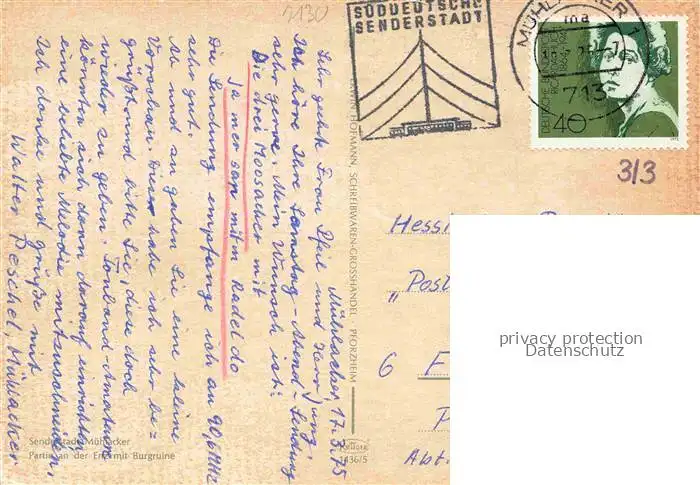 2130
SÜDDEUTSCHE
SENDERSTADT
MÜHLACKER
713
DEUTSCHE BUNDESPOST
40
313
Mühlacker, 17.3.75
Sehr geehrte Frau Pfeil und Herr Jung.
Ich höre Ihre Samstag-Abend-Sendung
sehr gerne. Mein Wunsch ist:
Die drei Moosacher mit
Ja mer san mit'm Radel do
Die Sendung empfange ich an 90,6 MHz
sehr gut.
Ab und zu geben Sie eine kleine
Vorschau. Dies habe ich sehr be-
grüßt und bitte Sie, diese doch
wieder zu geben. Tonband-Amateure
könnten sich dann darauf einrichten
eine beliebte Melodie mitzuschneiden.
Ich danke und grüße mit
Walter Peschel, Mühlacker
HOFMANN, SCHREIBWAREN-GROSSHANDEL · PFORZHEIM
Senderstadt Mühlacker
Partie an der Enz mit Burgruine
1436/5
„Post
6 F
Abt.
privacy protection
Datenschutz